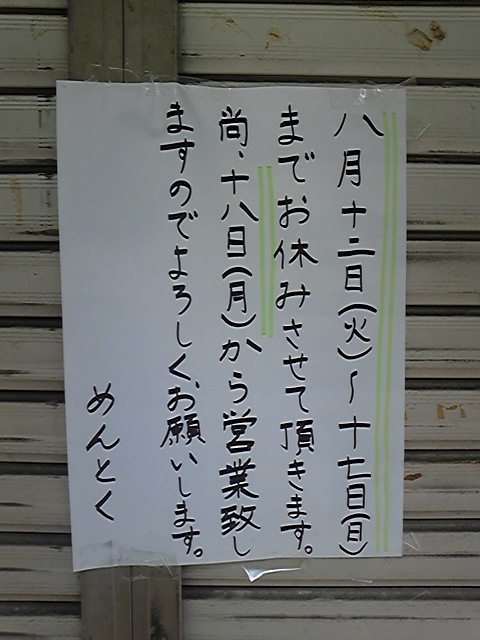 八月十二日(火)～十七日(日)
までお休みさせて頂きます。
尚、十八日(月)から営業致し
ますのでよろしく、お願いします。
めんとく